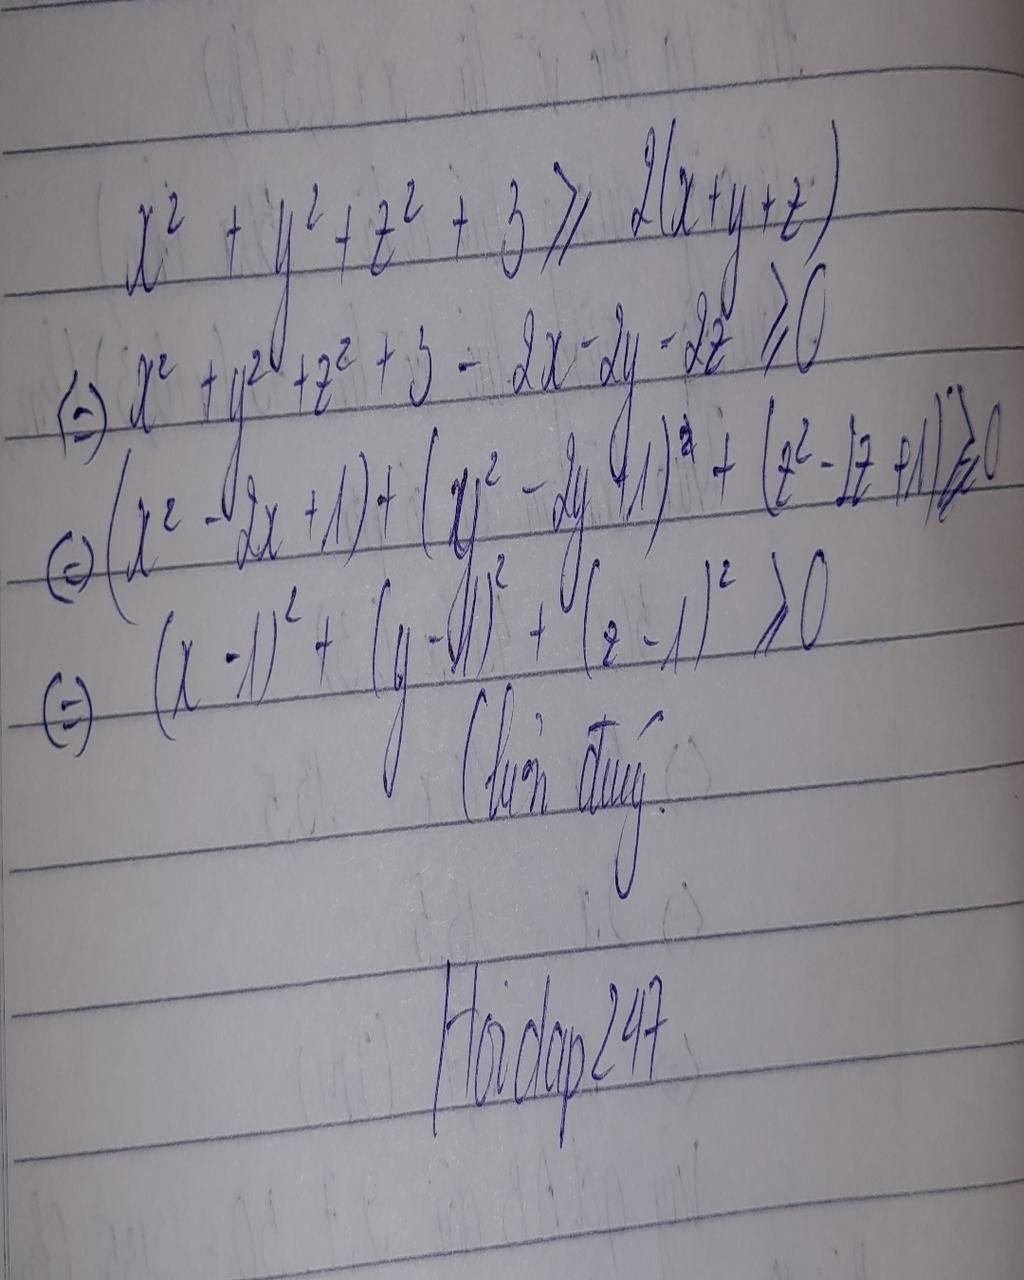 x² + y² + z² + 3 ⩾ 2(x+y+z)
(=) x² + y² + z² + 3 - 2x - 2y - 2z ⩾ 0
(=) (x² - 2x + 1) + (y² - 2y + 1) + (z² - 2z + 1) ⩾ 0
(=) (x - 1)² + (y - 1)² + (z - 1)² ⩾ 0
(luôn đúng.
Hoidap247